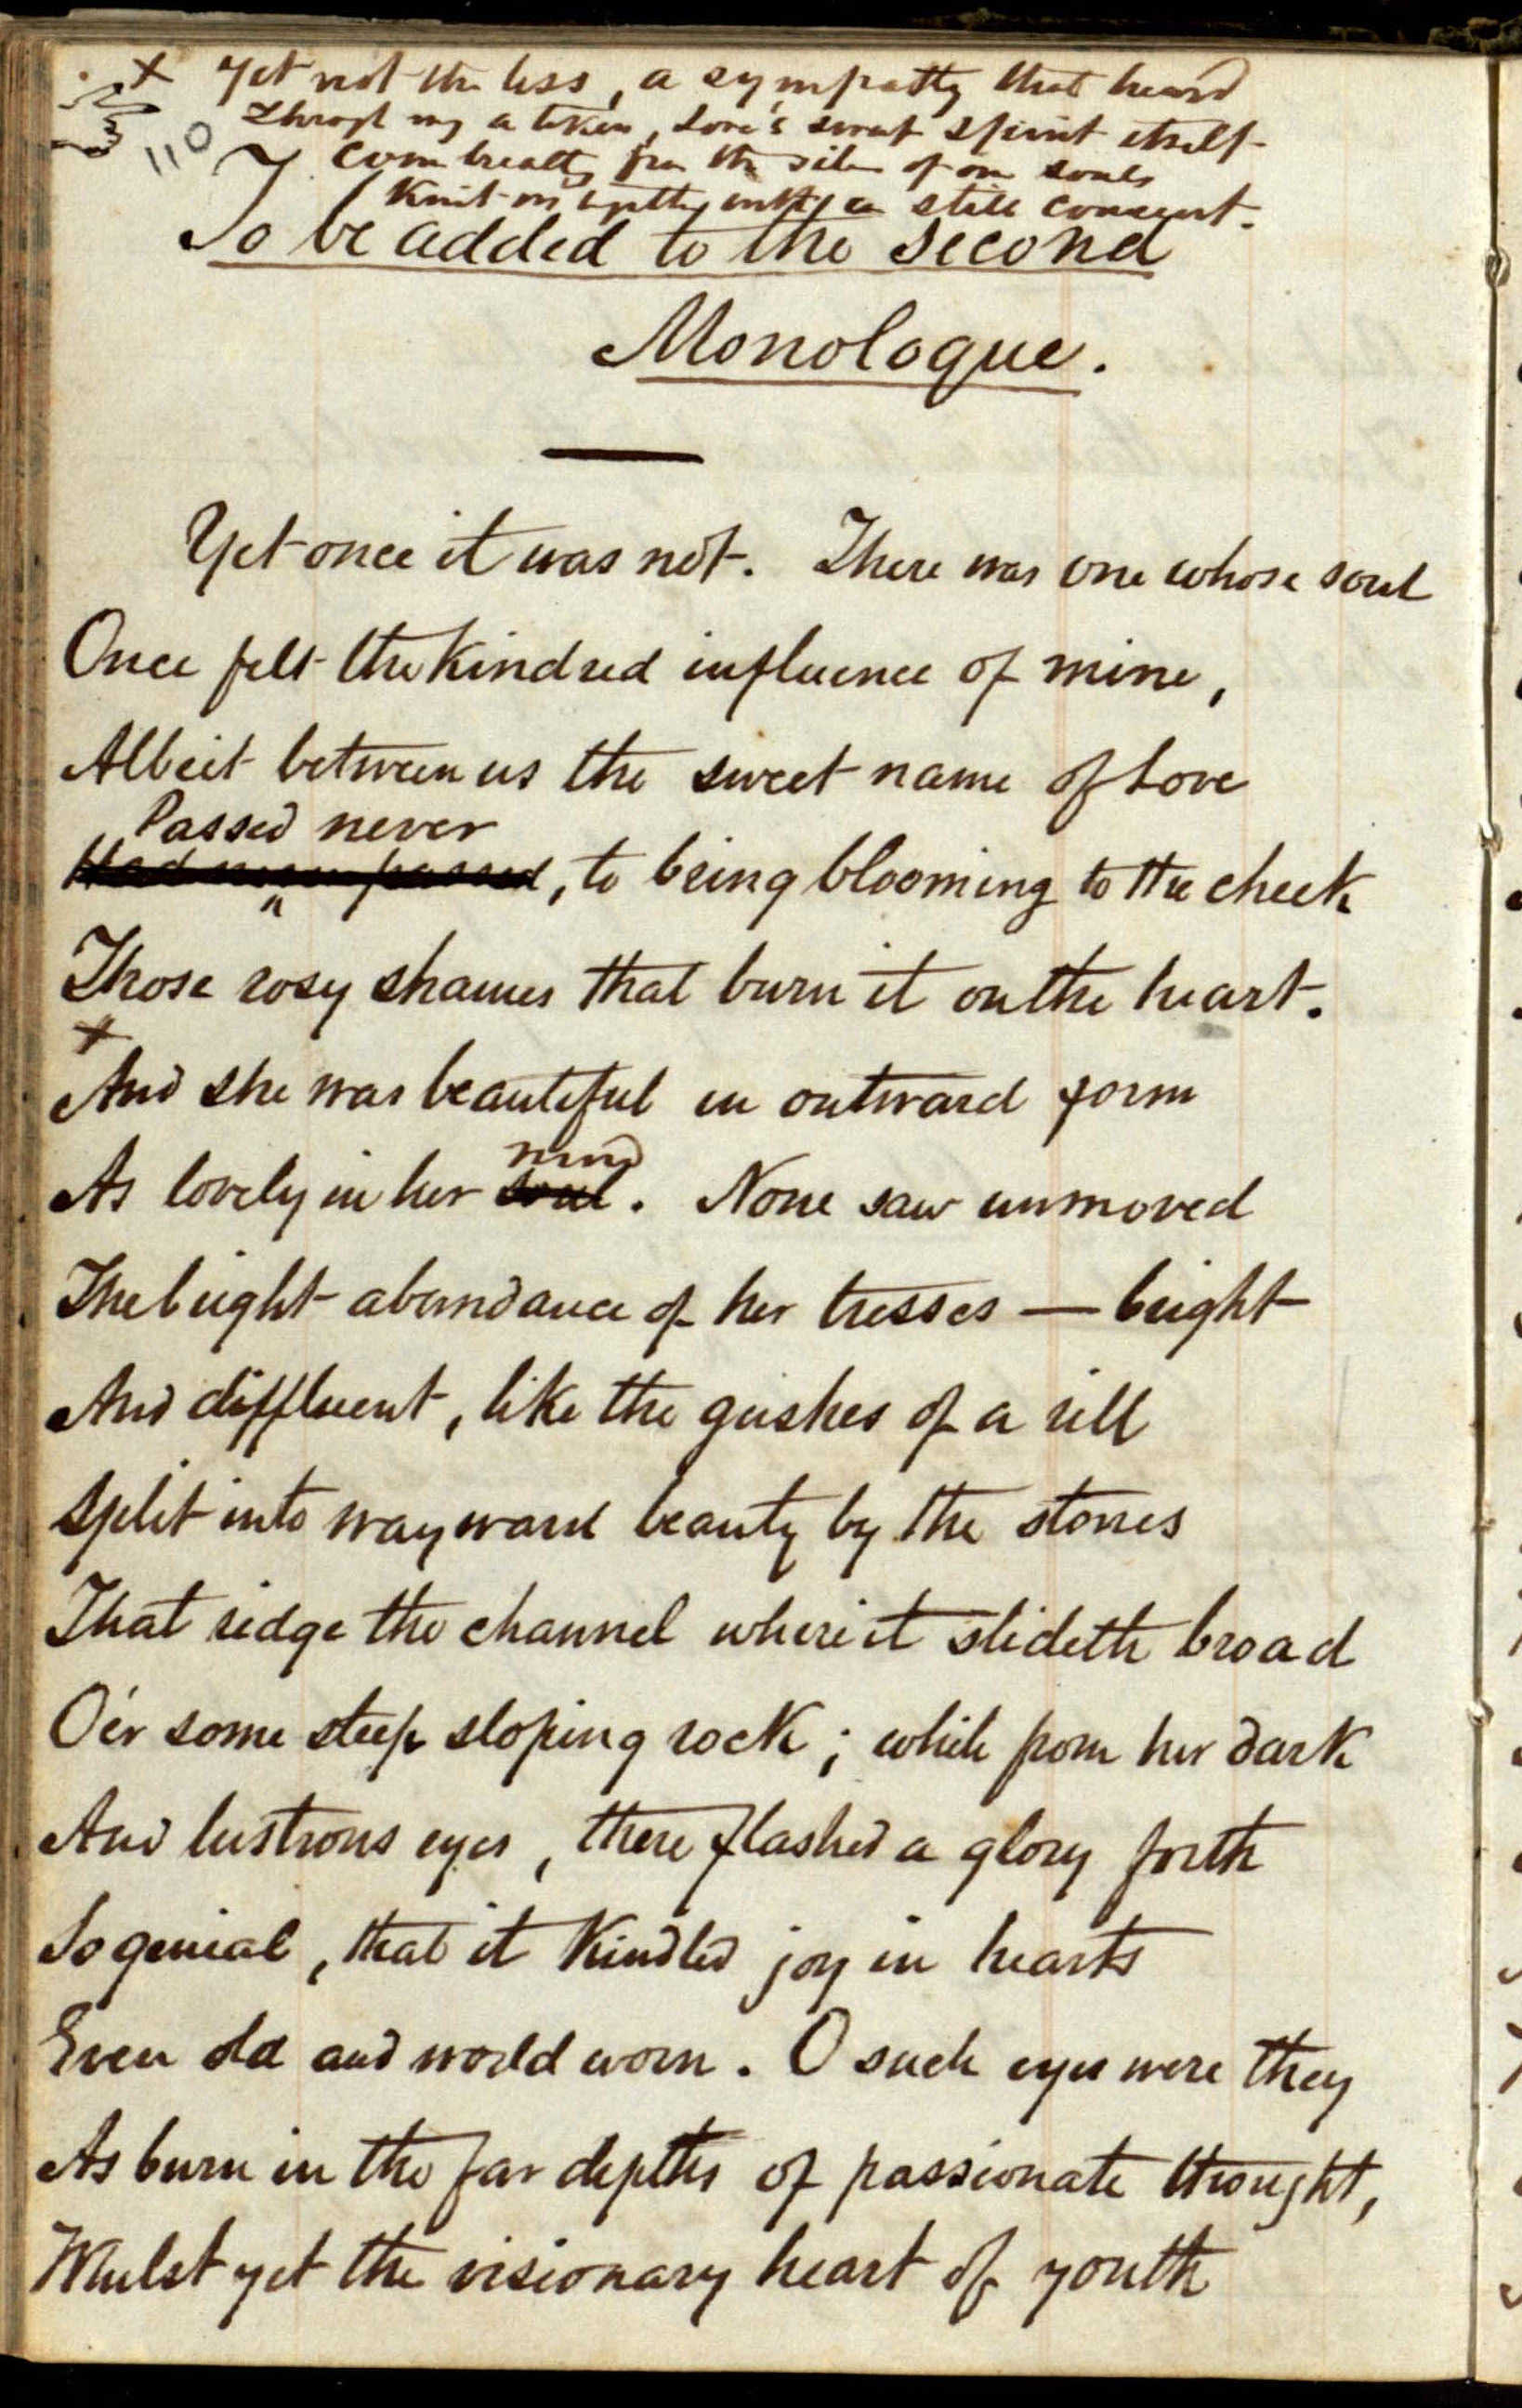 + Yet not the less, a sympathy that heard
Through many a token, Love's sweet spirit itself
110
Come breathing from the silence of our souls
Knit us together with a still consent.
To be added to the second
Monologue.
Yet once it was not. There was one whose soul
Once felt the kindred influence of mine,
Albeit between us the sweet name of Love
Passed never
Had never passed, to being blooming to the cheek
Those rosy shames that burn it on the heart.
+
And she was beautiful in outward form
mind
As lovely in her soul. None saw unmoved
The bright abundance of her tresses — bright
And diffluent, like the gushes of a rill
Split into wayward beauty by the stones
That ridge the channel where it slideth broad
O'er some steep sloping rock; while from her dark
And lustrous eyes, there flashed a glory forth
So genial, that it kindled joy in hearts
Even old and world worn. O such eyes were they
As burn in the far depths of passionate thought,
Whilst yet the visionary heart of youth